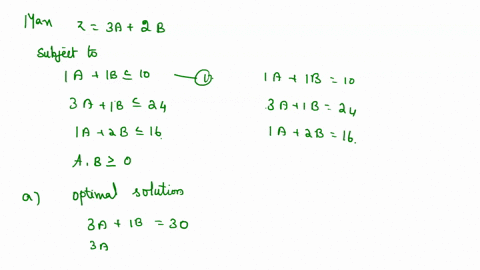 Man Z = 3A + 2B
Subject to
1A + 1B ≤ 10 — ①
3A + 1B ≤ 24
1A + 2B ≤ 16.
A, B ≥ 0
1A + 1B = 10
3A + 1B = 24
1A + 2B = 16.
a) Optimal solution
3A + 1B = 30
3A